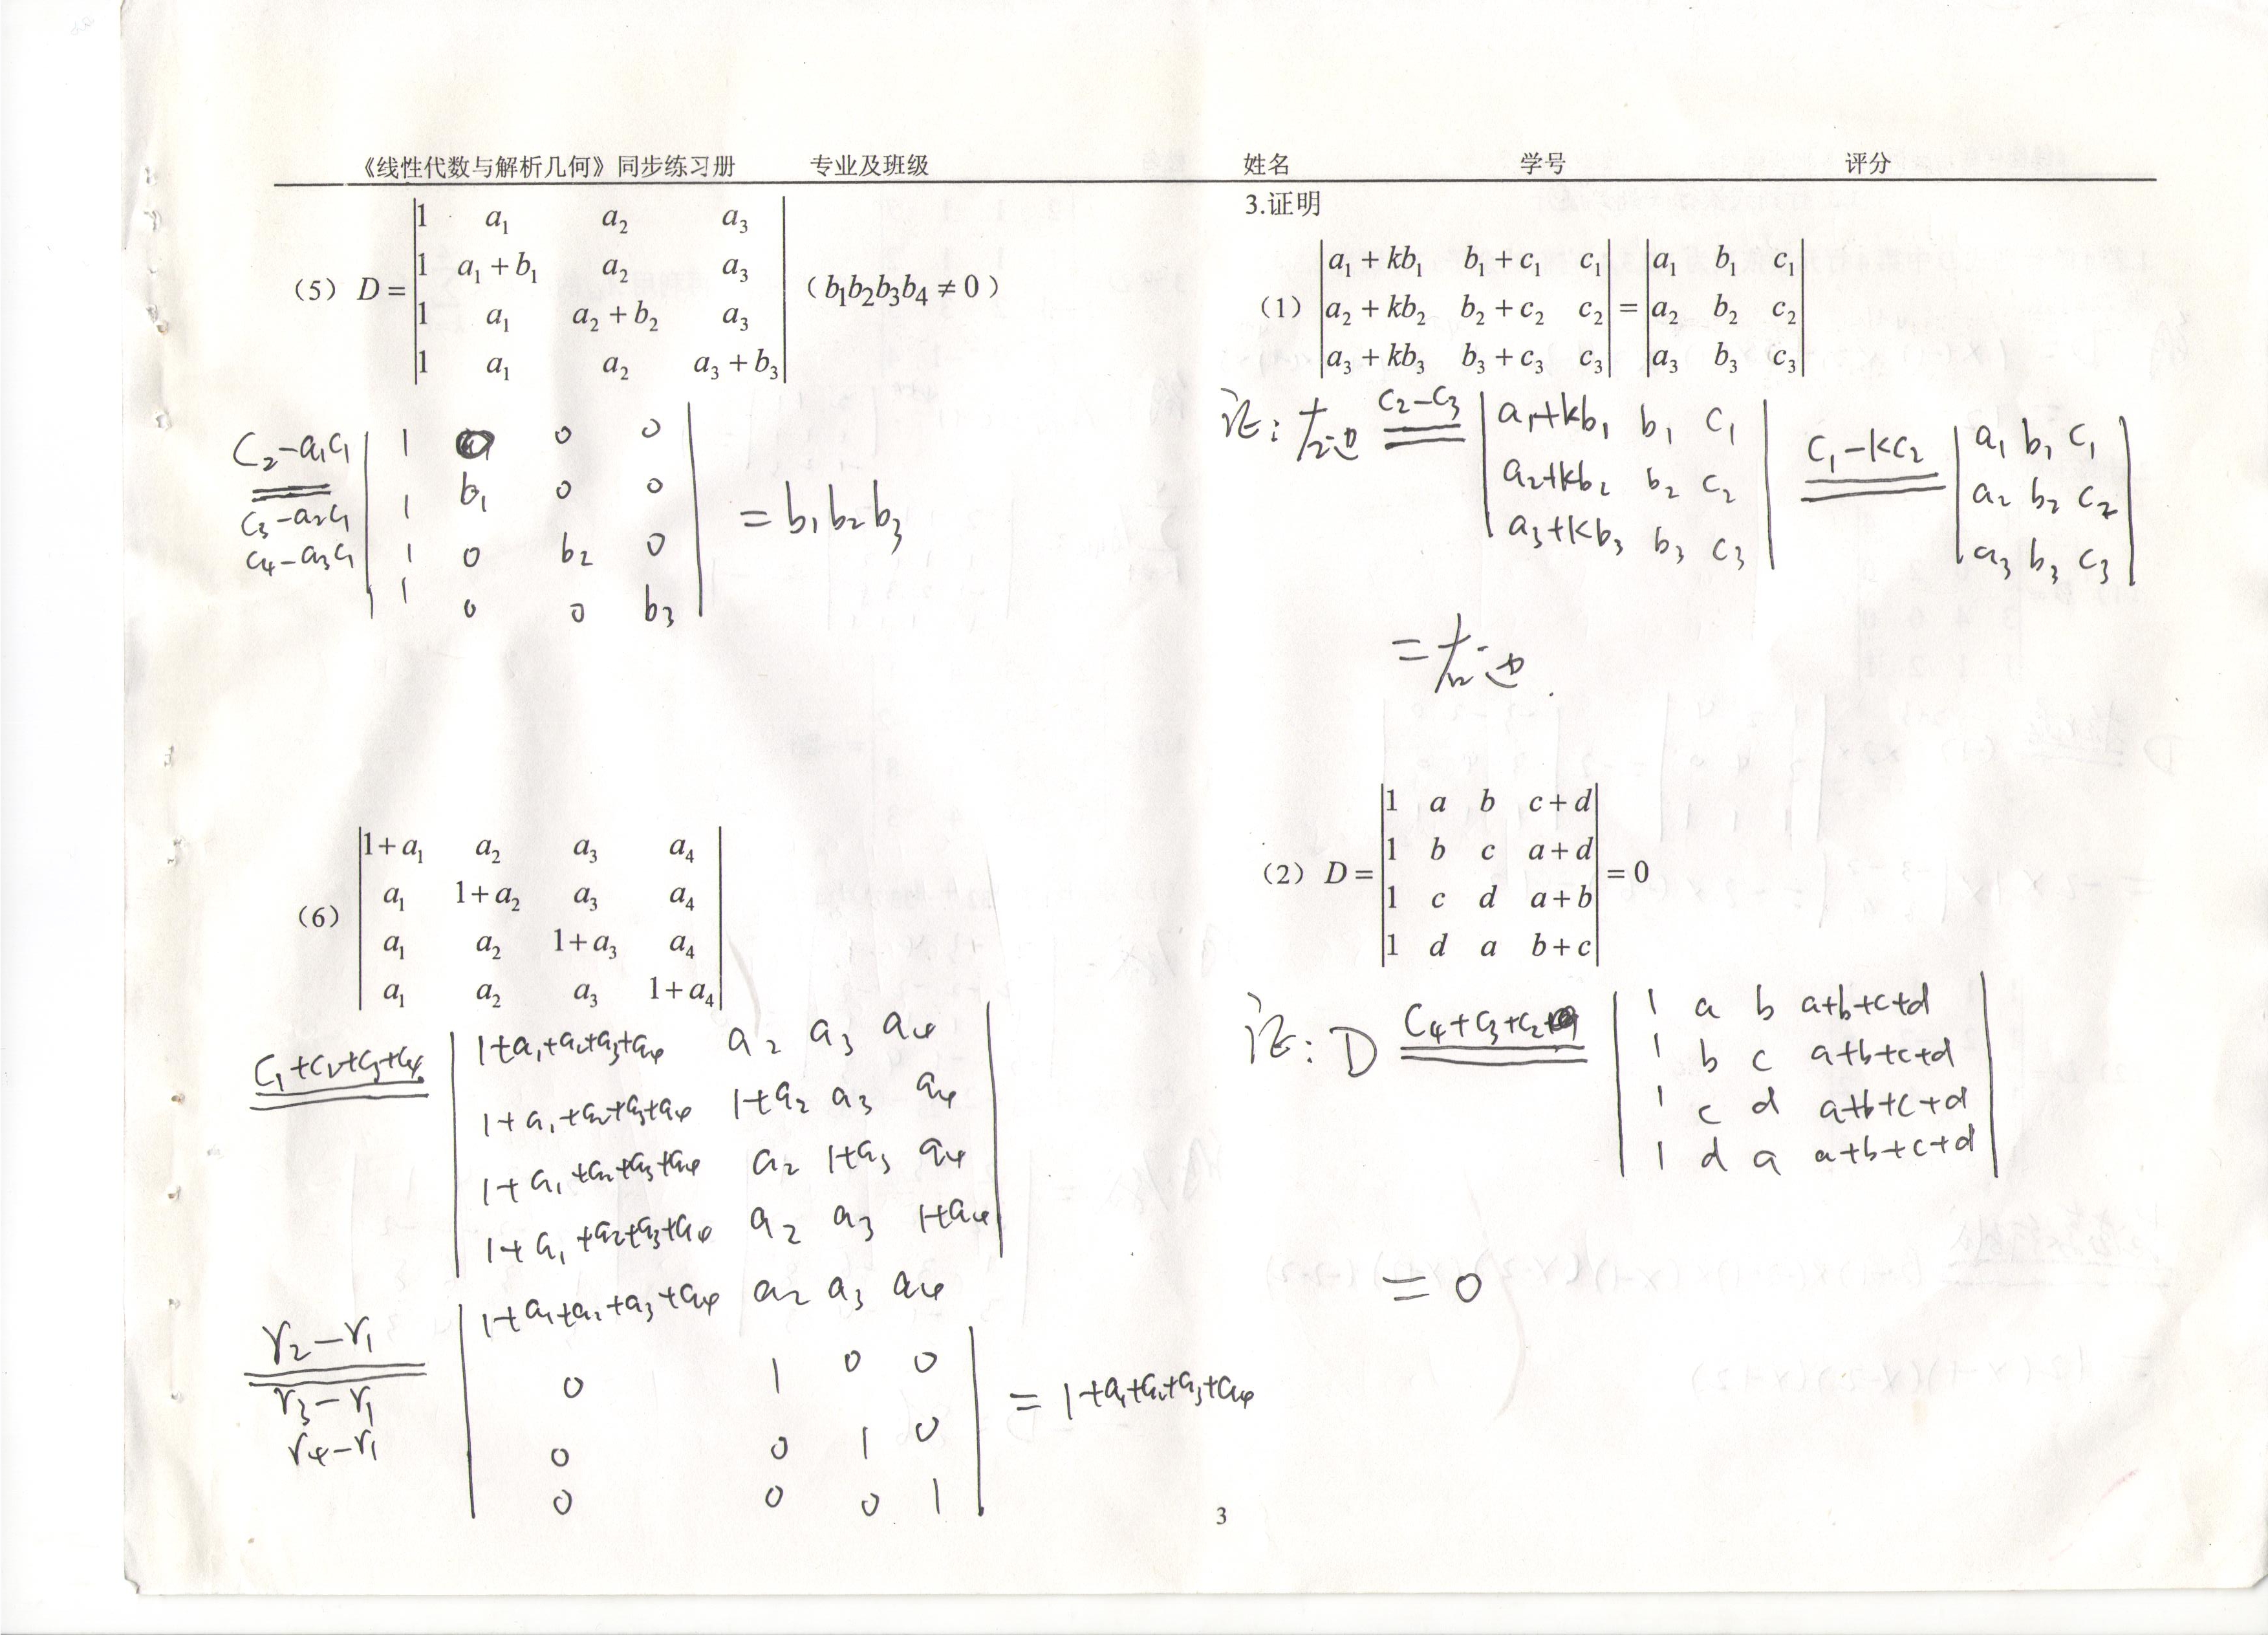 《线性代数与解析几何》同步练习册 专业及班级 姓名 学号 评分
(5) D = | 1 a₁ a₂ a₃ |
| 1 a₁+b₁ a₂ a₃ |
| 1 a₁ a₂+b₂ a₃ |
| 1 a₁ a₂ a₃+b₃ |
(b₁b₂b₃b₄≠0)
C₂-a₁C₁
C₃-a₂C₁
C₄-a₃C₁
| 1 0 0 0 |
| 1 b₁ 0 0 |
| 1 0 b₂ 0 |
| 1 0 0 b₃ |
= b₁b₂b₃
(6) | 1+a₁ a₂ a₃ a₄ |
| a₁ 1+a₂ a₃ a₄ |
| a₁ a₂ 1+a₃ a₄ |
| a₁ a₂ a₃ 1+a₄ |
C₁+C₂+C₃+C₄
| 1+a₁+a₂+a₃+a₄ a₂ a₃ a₄ |
| 1+a₁+a₂+a₃+a₄ 1+a₂ a₃ a₄ |
| 1+a₁+a₂+a₃+a₄ a₂ 1+a₃ a₄ |
| 1+a₁+a₂+a₃+a₄ a₂ a₃ 1+a₄ |
r₂-r₁
r₃-r₁
r₄-r₁
| 1+a₁+a₂+a₃+a₄ a₂ a₃ a₄ |
| 0 1 0 0 |
| 0 0 1 0 |
| 0 0 0 1 |
= 1+a₁+a₂+a₃+a₄
3.证明
(1) | a₁+kb₁ b₁+c₁ c₁ | = | a₁ b₁ c₁ |
| a₂+kb₂ b₂+c₂ c₂ | | a₂ b₂ c₂ |
| a₃+kb₃ b₃+c₃ c₃ | | a₃ b₃ c₃ |
证: 左边 C₂-C₃ | a₁+kb₁ b₁ c₁ | C₁-kC₂ | a₁ b₁ c₁ |
| a₂+kb₂ b₂ c₂ | | a₂ b₂ c₂ |
| a₃+kb₃ b₃ c₃ | | a₃ b₃ c₃ |
= 右边.
(2) D = | 1 a b c+d | = 0
| 1 b c a+d |
| 1 c d a+b |
| 1 d a b+c |
证: D C₄+C₃+C₂ | 1 a b a+b+c+d |
| 1 b c a+b+c+d |
| 1 c d a+b+c+d |
| 1 d a a+b+c+d |
= 0
3